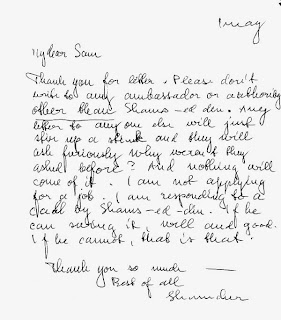 My dear Sam
Thank you for letter. Please don't
write to any ambassador or authority
other than Shams-ed-den. Any
letter to anyone else will just
stir up a stink and they will
ask furiously why weren't they
asked before? And nothing will
come of it. I am not applying
for a job. I am responding to a
call by Shams-ed-den. If he
can swing it, well and good.
If he cannot, that is that.
Thank you so much —
Best of all